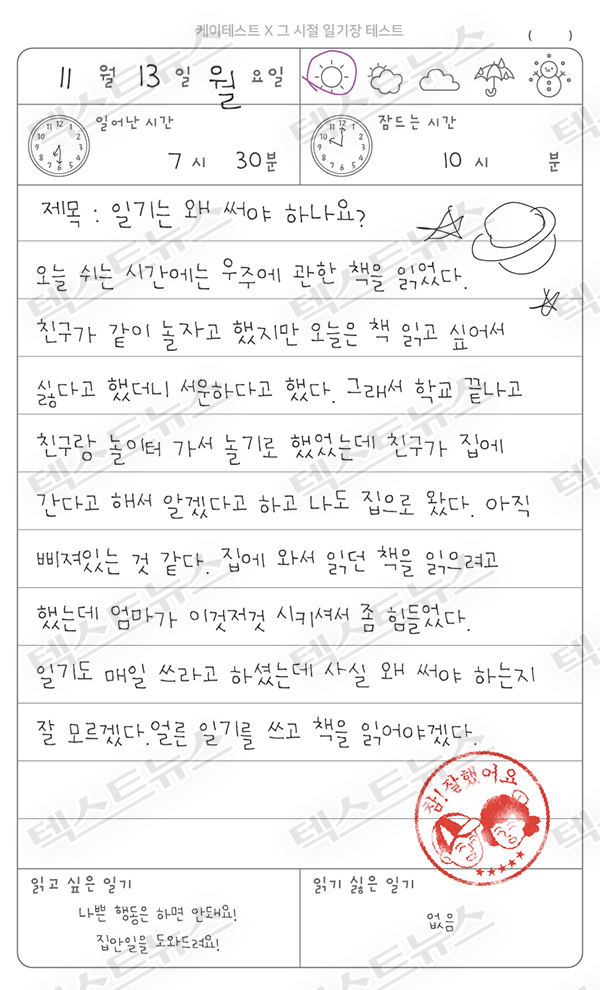 케이테스트 X 그 시절 일기장 테스트
( )
11 월 13 일 월 요일
일어난 시간
7 시 30 분
잠드는 시간
10 시 분
제목 : 일기는 왜 써야 하나요?
오늘 쉬는 시간에는 우주에 관한 책을 읽었다.
친구가 같이 놀자고 했지만 오늘은 책 읽고 싶어서
싫다고 했더니 서운하다고 했다. 그래서 학교 끝나고
친구랑 놀이터 가서 놀기로 했었는데 친구가 집에
간다고 해서 알겠다고 하고 나도 집으로 왔다. 아직
삐져있는 것 같다. 집에 와서 읽던 책을 읽으려고
했는데 엄마가 이것저것 시키셔서 좀 힘들었다.
일기도 매일 쓰라고 하셨는데 사실 왜 써야 하는지
잘 모르겠다. 얼른 일기를 쓰고 책을 읽어야겠다.
참! 잘했어요
읽고 싶은 일기
나쁜 행동은 하면 안돼요!
집안일을 도와드려요!
읽기 싫은 일기
없음
텍스트뉴스